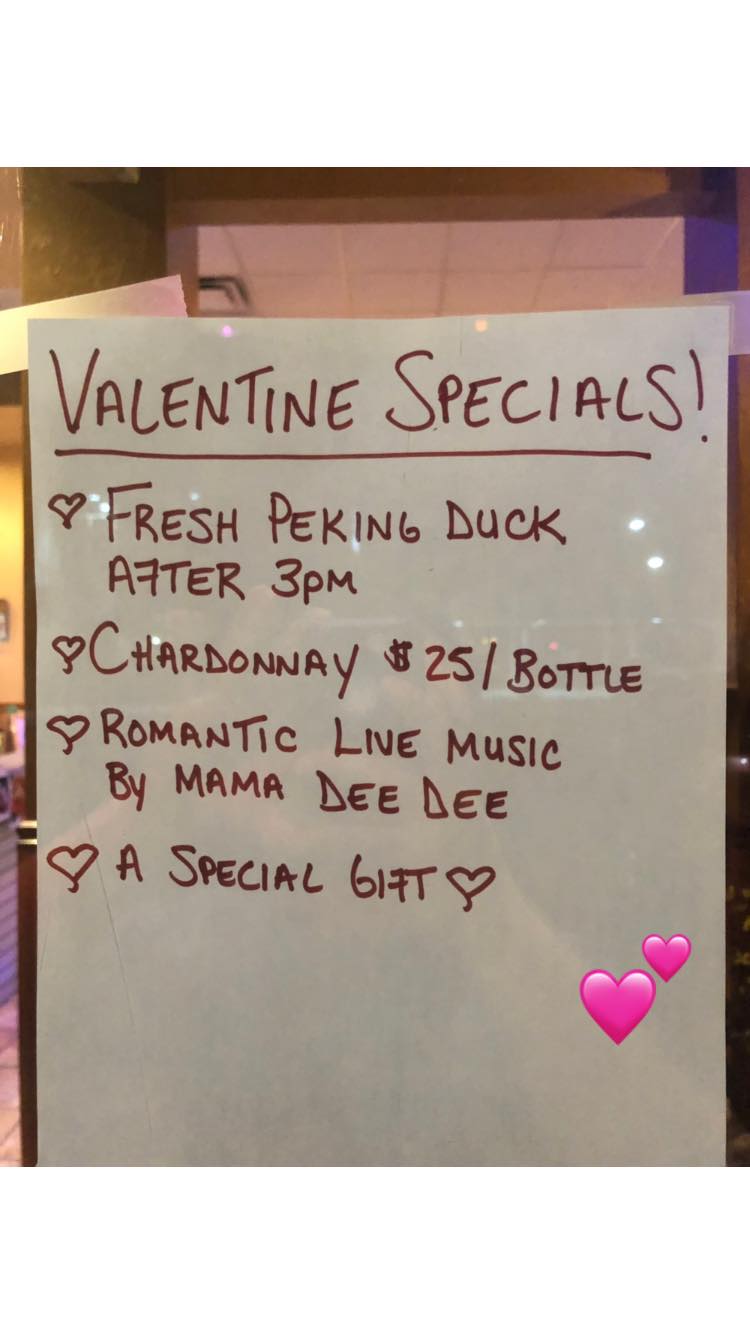 VALENTINE SPECIALS!
FRESH PEKING DUCK
AFTER 3PM
CHARDONNAY $25/BOTTLE
ROMANTIC LIVE MUSIC
By MAMA DEE DEE
A SPECIAL GIFT